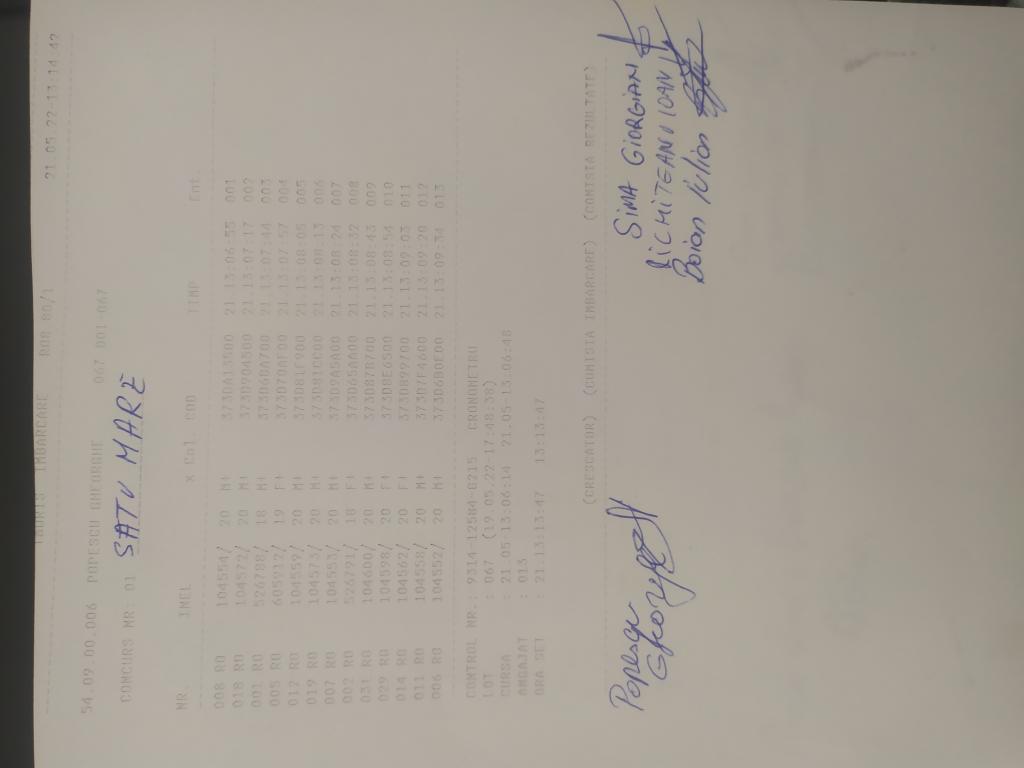 TAURIS IMBARCARE BDR 80/1 21.05.22-13:14:42
54.09.00.006 POPESCU GHEORGHE 067 001-067
CONCURS NR: 01 SATU MARE
NR. INEL x Cnl COD TIMP Cnt.
008 RO 104554/ 20 M+ 373DA13500 21.13:06:55 001
018 RO 104572/ 20 M+ 373D90A500 21.13:07:17 002
001 RO 526788/ 18 M+ 373D6BA700 21.13:07:44 003
005 RO 605912/ 19 F+ 373D7DAF00 21.13:07:57 004
012 RO 104559/ 20 M+ 373D81F900 21.13:08:05 005
019 RO 104573/ 20 M+ 373D81CC00 21.13:08:13 006
007 RO 104553/ 20 M+ 373D9A5A00 21.13:08:24 007
002 RO 526791/ 18 F+ 373D65AA00 21.13:08:32 008
031 RO 104600/ 20 M+ 373D87B700 21.13:08:43 009
029 RO 104598/ 20 F+ 373D8E6500 21.13:08:54 010
014 RO 104562/ 20 F+ 373D899700 21.13:09:03 011
011 RO 104558/ 20 M+ 373D7F4600 21.13:09:20 012
006 RO 104552/ 20 M+ 373D6B0E00 21.13:09:34 013
CONTROL NR.: 9314-12584-G215 CRONOMETRU
LOT : 067 (19.05.22-17:48:38)
CURSA : 21.05-13:06:14 21.05-13:06:48
ANGAJAT : 013
ORA SET : 21.13:13:47 13:13:47
(CRESCATOR) (COMISIA IMBARCARE) (COMISIA REZULTATE)
Popescu
SIMA GIORGIAN
IOAN
Boion Iulian